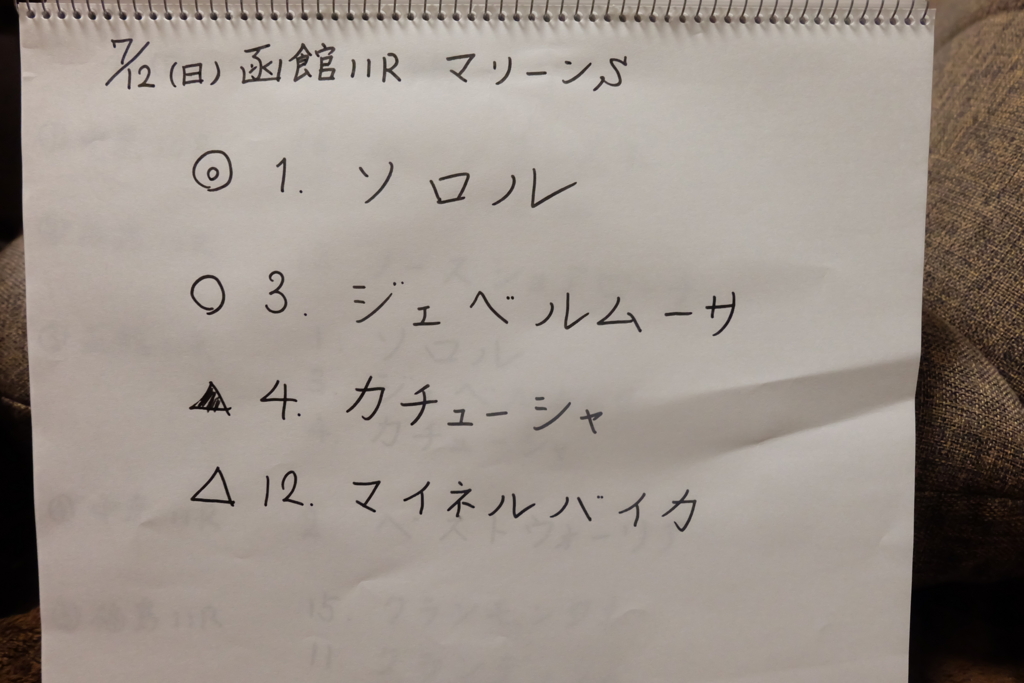 7/12(日)函館11R マリーンS
◎ 1. ソロル
○ 3. ジェベルムーサ
▲ 4. カチューシャ
△ 12. マイネルバイカ